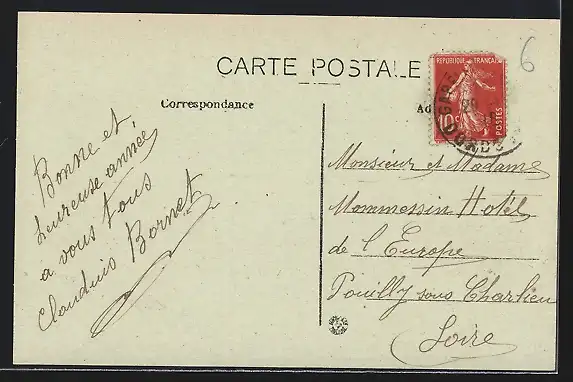 CARTE POSTALE
Correspondance
Ad
6
REPUBLIQUE FRANÇAISE
10c
POSTES
Bonne et
heureuse année
a vous tous
Claudius Bornet
Monsieur et Madame
Mommessin Hotel
de l'Europe
Pouilly sous Charlieu
Loire